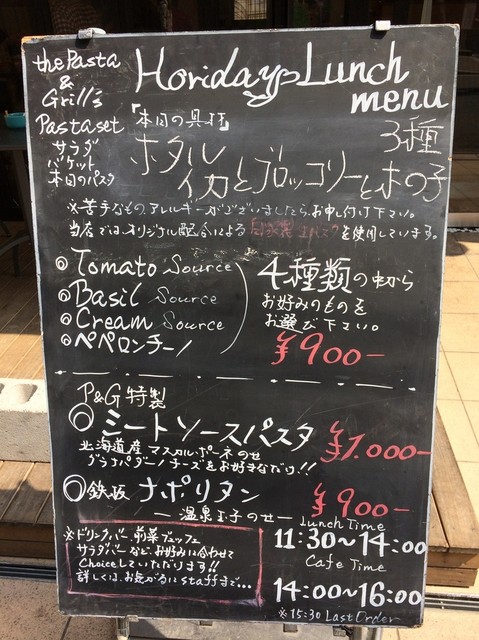 the Pasta
&
Grill's
Horiday Lunch
menu
Pasta set
サラダ
バケット
本日のパスタ
「本日の具材」
3種
ホタル
イカとブロッコリーと木の子
※苦手なもの、アレルギーがございましたらお申し付け下さい。
当店では、オリジナル配合による自家製生パスタを使用しています。
◎Tomato Source
◎Basil Source
◎Cream Source
◎ペペロンチーノ
4種類の中から
お好みのものを
お選び下さい。
¥900-
P&G特製
◎ミートソースパスタ
¥1.000-
北海道産マスカルポーネのせ
グラナパダーノチーズをお好きなだけ!!
◎鉄板ナポリタン
¥900-
— 温泉玉子のせ —
※ドリンクバー、前菜ブュッフェ
サラダバーなど、お好みに合わせて
Choiceしていただけます!!
詳しくは、お気がるにstaffまで...
Lunch Time
11:30~14:00
Cafe Time
14:00~16:00
※15:30 Last Order